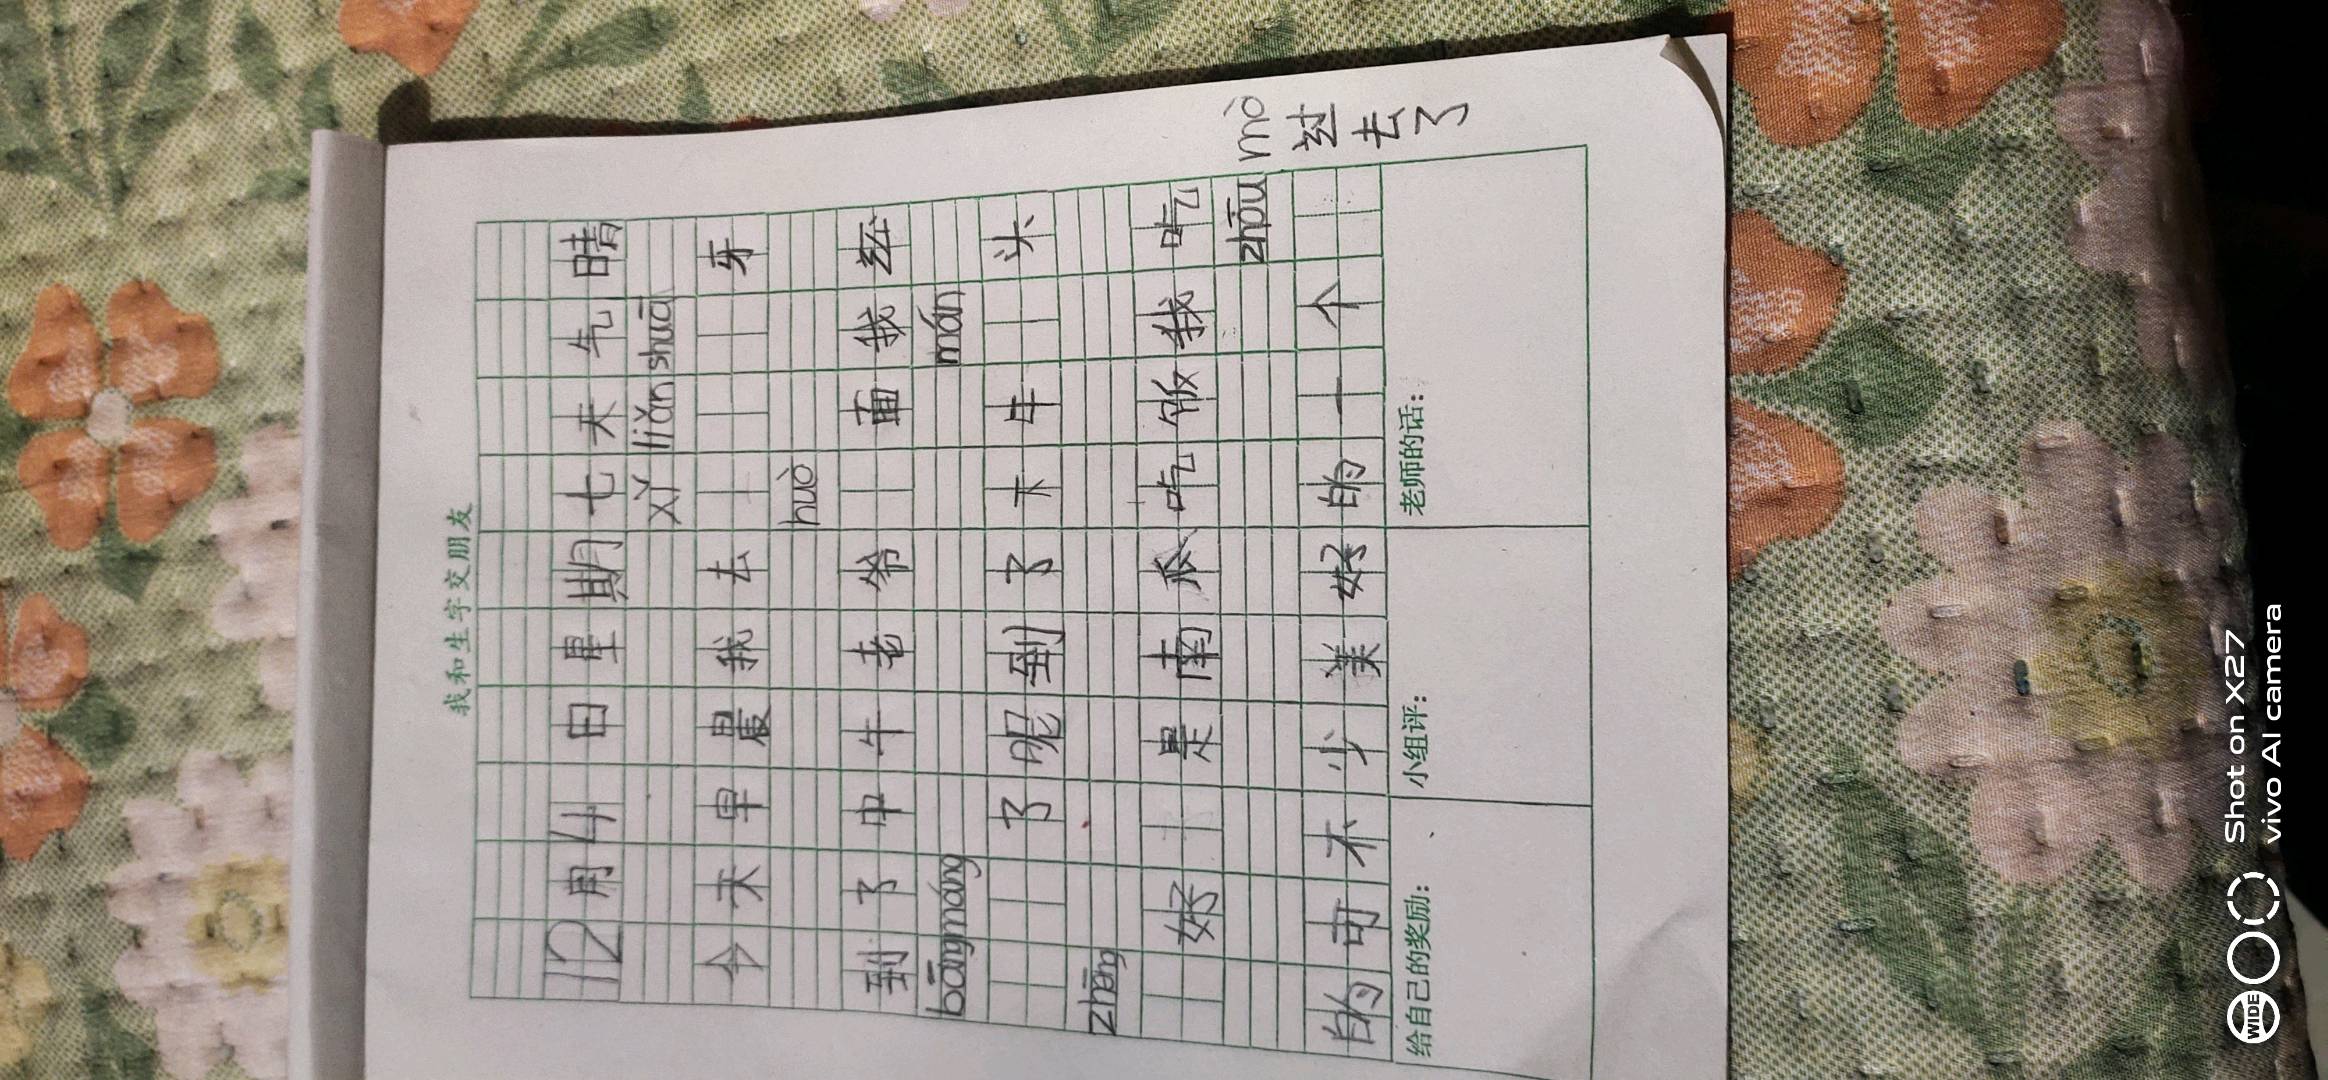 我和生字交朋友
12月4日星期七天气晴
xǐ liǎn shuā
今天早晨我去 牙
huò
到了中牛老爷 面我给
bāngmáng mán
了呢到了下牛 头
zhāng
好 是南瓜吃饭我吃
zhōu mò
的可不少美好的一个 过去了
给自己的奖励: 小组评: 老师的话:
Shot on X27
vivo AI camera
WIDE